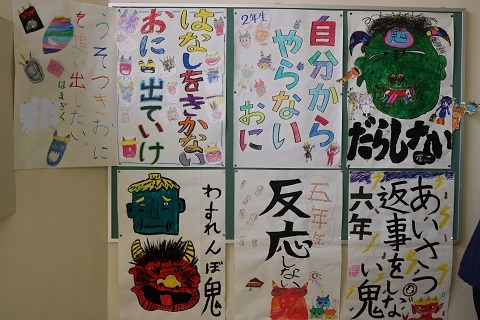 うそつきおに
を追い出したい
はまぎく
はなしをきかない
おに出ていけ
2年生
自分から
やらない
おに
だらしない
わすれんぼ鬼
五年生
反応しない
あいさつ
返事をしな
い鬼
六年